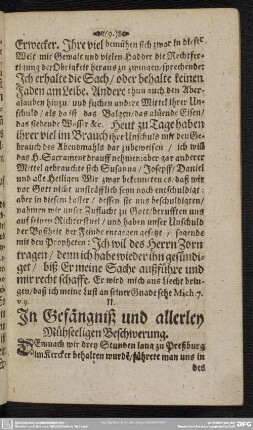 /9./
Erwecker. Ihre viel bemühen sich zwar in dieser
Welt mit Gewalt und vielen Hadder die Rechtfer-
tigung der Obrigkeit heraus zu zwingen/sprechende:
Ich erhalte die Sach / oder behalte keinen
Faden am Leibe. Andere thun auch den Aber-
glauben hinzu / und suchen andere Mittel ihrer Un-
schuld / als da ist das Balgen / das glüende Eisen /
das siedende Wasser &c. Heut zu Tage haben
ihrer viel im Brauch ihre Unschuld mit dem Ge-
brauch des Abendmahls dar zubeweisen / ich will
das H. Sacrament drauff nehmen: aber gar anderer
Mittel gebrauchte sich Susanna / Joseph / Daniel
und alle Heiligen Wir zwar bekennten es / daß wir
vor Gott nicht unsträflich seyn noch entschuldigt:
aber in diesem Laster / dessen sie uns beschuldigten /
nahmen wir unser Zuflucht zu Gott / berufften uns
auf seinen Richterstuel / und haben unser Unschuld
der Boßheit der Feinde entgegen gesetzt / sagende
mit den Propheten: Ich wil des Herrn Zorn
tragen / denn ich habe wieder ihn gesündi-
get / biß Er meine Sache außführe und
mir recht schaffe. Er wird mich ans Liecht brin-
gen / daß ich meine Lust an seiner Gnade sehe Mich. 7.
v. 9.
II.
In Gefängniß und allerley
Mühseeligen Beschwerung.
DEmnach wir drey Stunden lang zu Preßburg
im Kercker behalten wurde, führete man uns in
des